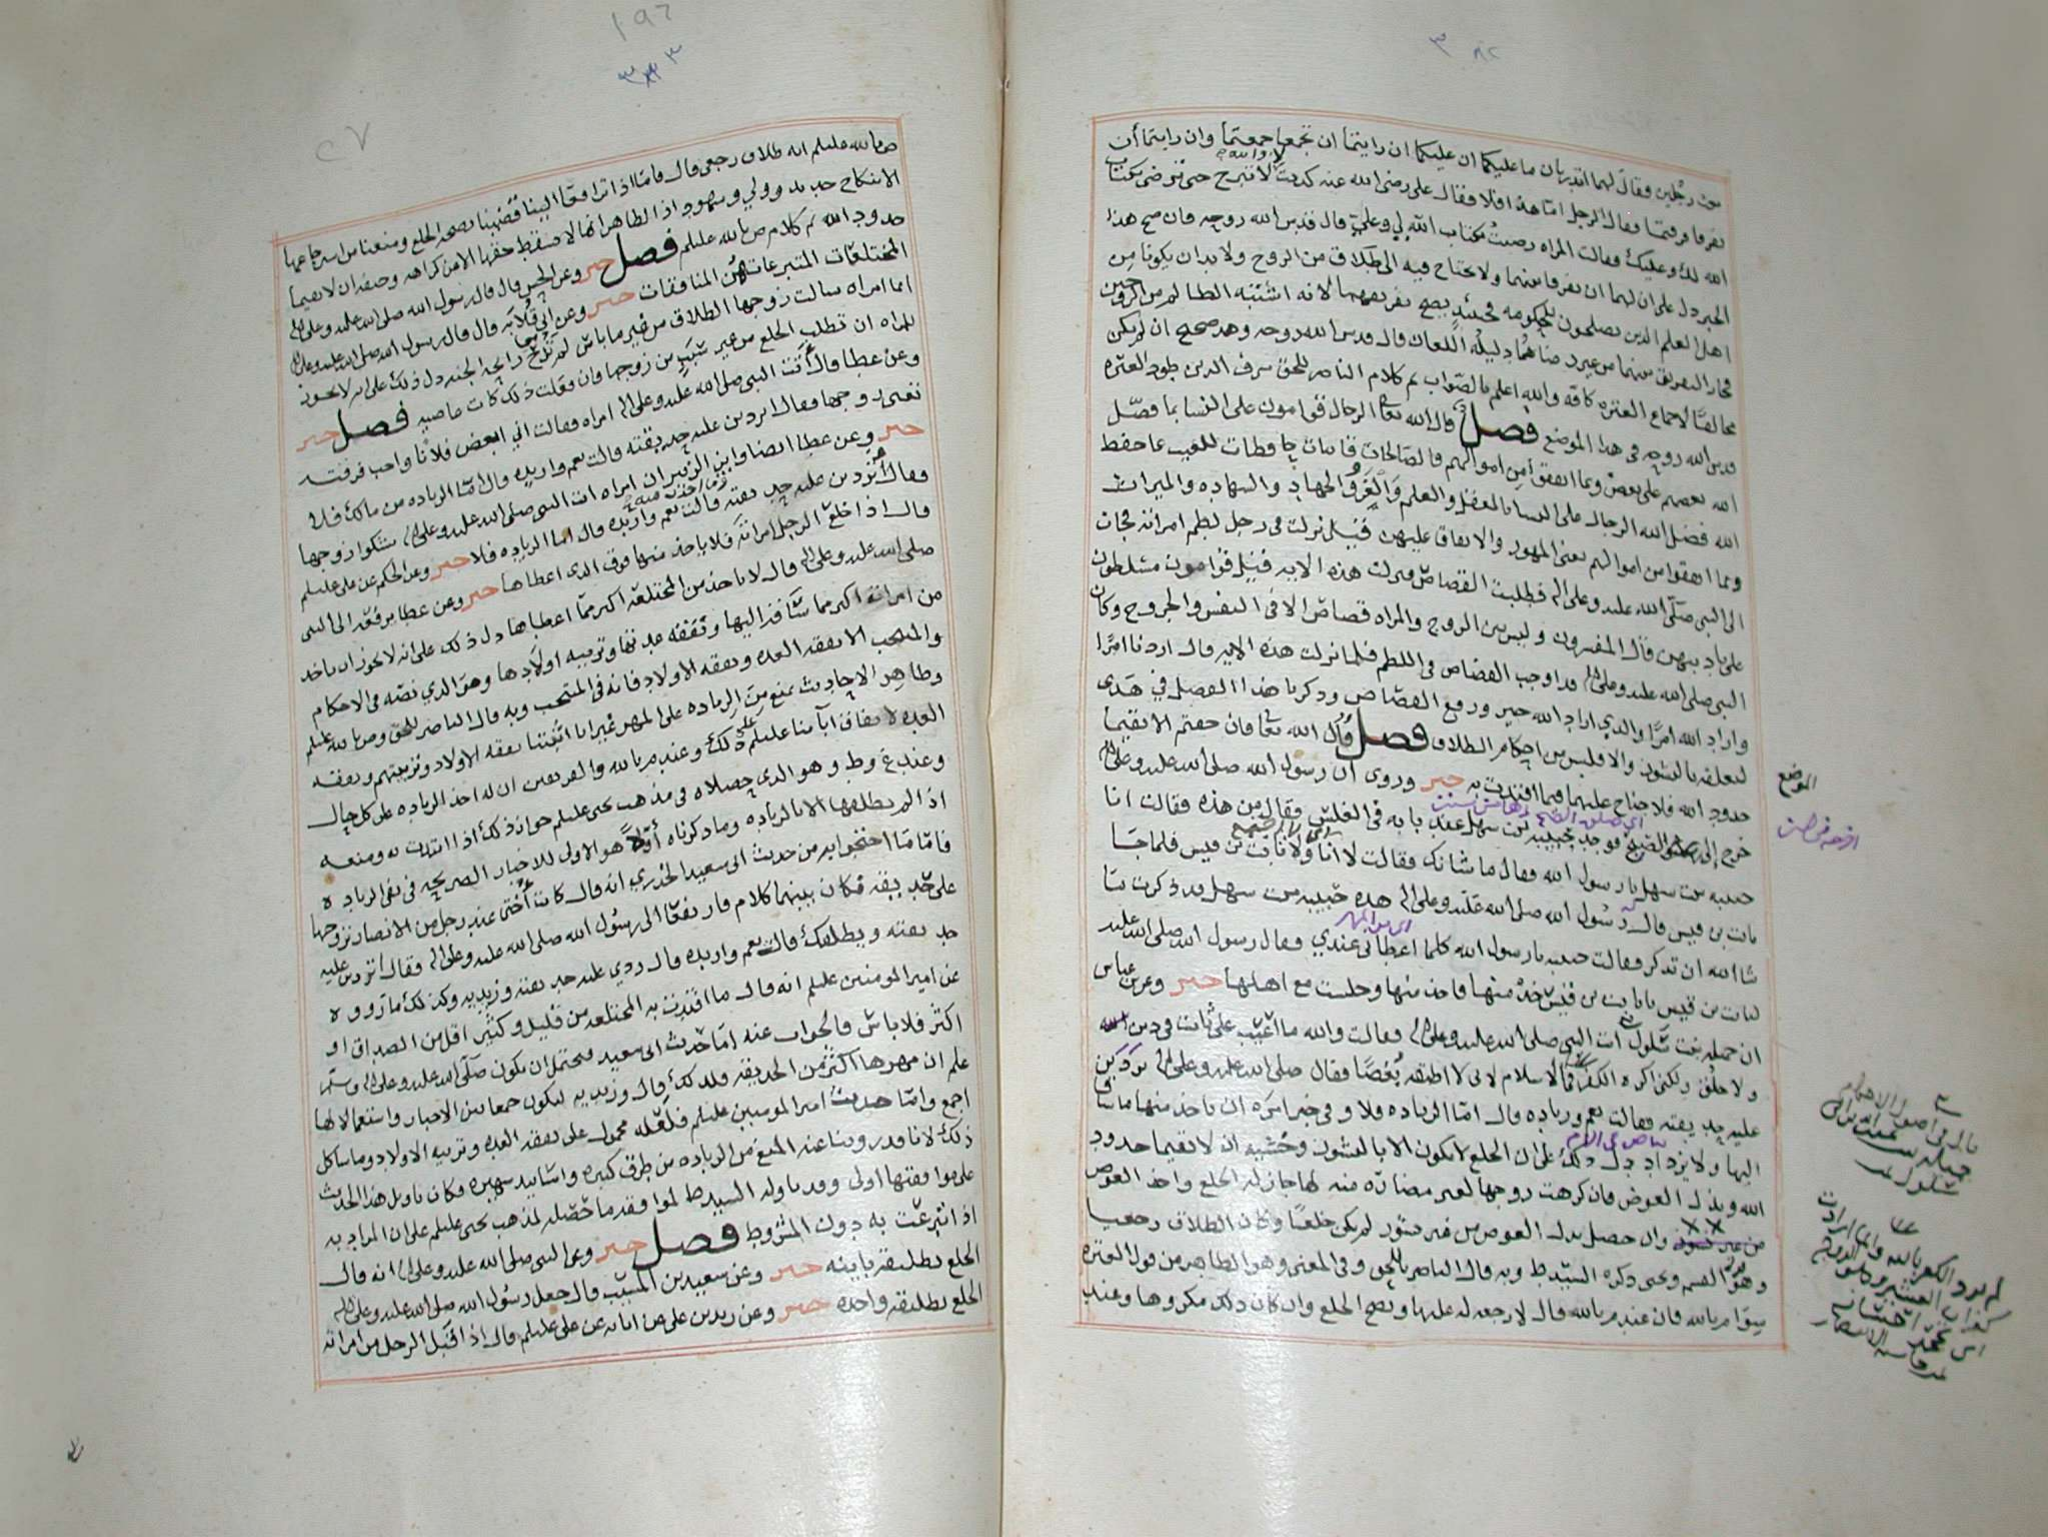 فقال لهما اتدريان ما عليكما ان عليكما ان رايتما ان تجمعا جمعتما وان رايتما أن
تفرقا فرقتما فقال الرجل امّا هذا فلا فقال علي رضي الله عنه كذبت لا والله لا تبرح حتى ترضى بكتاب
الله لك وعليك فقالت المراه رضيت بكتاب الله لي وعليّ قال قدس الله روحه فان صح هذا
الخبر دل على ان لهما ان يفرقا بينهما ولا يحتاج فيه الى طلاق من الزوج ولا بد ان يكونا من
اهل العلم الذين يصلحون للحكومه فحينئذٍ يصح تفريقهما لانه اشتبه الظالم من الزوجين
فجاز التفريق بينهما من غير رضاهما دليله اللعان قال قدس الله روحه وهذ صحيح ان لم يكن
مخالفًا لاجماع العتره كافه والله اعلم بالصّواب تم كلام الناصر للحق شرف الدين طود العتره
قدس الله روحه في هذا الموضع فصل قال الله تعالى الرجال قوامون على النسا بما فضّل
الله بعضهم على بعض وبما انفقوا من اموالهم فالصّالحات قانتات حافظات للغيب بما حفظ
الله فضل الله الرجال على النسا بالعقل والعلم والغزو والجهاد والشهاده والميراث
وبما انفقوا من اموالهم يعني المهور والانفاق عليهن قيل نزلت في رجل لطم امراته فجات
الى النبي صلّى الله عليه وعلى اله فطلبت القصاص فنزلت هذه الايه قيل قوامون مسلطون
على تاديبهن قال المفسرون وليس بين الزوج والمراه قصاص الا في النفس والجروح وكان
النبي صلى الله عليه وعلى اله قد اوجب القصاص في اللطم فلما نزلت هذه الايه قال اردنا امرًا
واراد الله امرًا والذي اراد الله خير ورفع القصاص وذكرنا هذا الفصل في هذي
الموضع
لتعلقه بالنشوز والا فليس من احكام الطلاق فصل قال الله تعالى فان خفتم الا يقيما
حدود الله فلا جناح عليهما فيما افتدت به خبر وروي ان رسول الله صلى الله عليه وعلى اله
خرج إلى الصبح فوجد حبيبه بنت سهل عند بابه في الغلس فقال من هذه فقالت انا
حبيبه بنت سهل يا رسول الله فقال ما شانك فقالت لا أنا ولا ثابت بن قيس فلما جا
ثابت بن قيس قال رسول الله صلى الله عليه وعلى اله هذه حبيبه بنت سهل قد ذكرت ما
اي من المهر
شا الله ان تذكر فقالت حبيبه يا رسول الله كلما اعطاني عندي فقال رسول الله صلى الله عليه
لثابت بن قيس يا ثابت بن قيس خذ منها فاخذ منها وجلست مع اهلها خبر وعن ابن عباس
ان جميله بنت سلول أتت النبي صلى الله عليه وعلى اله فقالت والله ما اعتب على ثابت في دين
ولا خلق ولكني اكره الكفر في الاسلام لاني لا اطيقه بُغضًا فقال صلى الله عليه وعلى اله تردين
عليه حديقته فقالت نعم وزياده قال امّا الزياده فلا وفي خبر امره ان ياخذ منها ما ساق
اليها ولا يزداد دل ذلك على ان الخلع لا يكون الا بالنشوز وخشيه ان لا يقيما حدود
الله وبذل العوض فان كرهت زوجها لغير مضارّه منه لها جاز له الخلع واخذ العوض
وان حصل بذل العوض من غير نشوز لم يكن خلعًا وكان الطلاق رجعيا
وهو قول القسم ويحيى ذكره السيّد ط وبه قال الناصر للحق وفي المعنى وهو الظاهر من قول العتره
سوى م بالله فان عند م بالله قال لا رجعه له عليها ويصح الخلع وان كان ذلك مكروها وعند
جميله
سلول
لم ترد الكفر بالله وانما ارادت
ص بالله عليلم انه طلاق رجعي قال فامّا اذا ترافعا الينا قضينا بصحه الخلع ومنعنا من استرجاعها
الا بنكاح جديد وولي وشهود اذا لظاهر انها لا تسقط حقها الا من كراهه وخيفه ان لا يقيما
حدود الله تم كلام ص بالله عليلم فصل خبر وعن الحسن قال قال رسول الله صلى الله عليه وعلى اله
المختلعات المتبرعات هن المنافقات خبر وعن ابي قلابه قال قال رسول الله صلى الله عليه وعلى اله
ايما امراه سالت زوجها الطلاق من غير ما باس لم تَرح رايحه الجنه دل ذلك على انه لا يجوز
للمراه ان تطلب الخلع من غير سبب من زوجها فان فعلت ذلك كانت عاصيه فصل خبر
وعن عطا قال أتت النبي صلى الله عليه وعلى اله امراه فقالت اني ابغض فلانا واحب فرقته
تعني زوجها فقال اتردين عليه حديقته قالت نعم وازيده قال امّا الزياده من مالك فلا
خبر وعن عطا ايضا وابن الزبير ان امراه اتت النبي صلى الله عليه وعلى اله تشكوا زوجها
فقال أتردين عليه حديقته قالت نعم وازيده قال اما الزياده فلا خبر وعن الحكم عن علي عليلم
قال اذا خلع الرجل امراته فلا ياخذ منها فوق الذي اعطاها خبر وعن عطا يرفعه الى النبي
صلى الله عليه وعلى اله قال لا ياخذ من المختلعه اكثر ممّا اعطاها دل ذلك على انه لا يجوز ان ياخذ
من امراته اكثر مما ساق اليها ونفقه عدتها وتربيه اولادها وهو الذي نصّه في الاحكام
والمنتخب الا نفقه العده ونفقه الاولاد فانه في المنتخب وبه قال الناصر للحق وص بالله عليلم
وظاهر الاحاديث يمنع من الزياده على المهر غير انا اثبتنا نفقه الاولاد وتربيتهم ونفقه
العده لاتفاق ابآئنا عليلم على ذلك وعند م بالله والفريقين ان له اخذ الزياده على كل حال
وعند ع وط وهو الذي حصلاه في مذهب يحيى عليلم جواز ذلك اذا ابتدت به ومنعه
اذا لم يطلقها الا بالزياده وما ذكرناه أولاً هو الاولى للاخبار الصريحه في نفي الزياده
فامّا ما احتجوا به من حديث ابي سعيد الخدري انه قال كانت أختي عند رجل من الانصار تزوجها
على حديقه فكان بينهما كلام فارتفعا الى رسُول الله صلى الله عليه وعلى اله فقال اتردين عليه
حديقته ويطلقك قالت نعم وازيده قال ردي عليه حديقته وزيديه وكذلك ما رووه
عن امير المومنين عليلم انه قال ما افتدت به المختلعه من قليل وكثير اقل من الصداق او
اكثر فلا باس فالجواب عنه امّا حديث ابي سعيد فيحتمل ان يكون صلّى الله عليه وعلى اله وسلّم
علم ان مهرها اكثر من الحديقه فلذلك قال وزيديه ليكون جمعا بين الاخبار واستعمالا لها
اجمع وامّا حديث امير المومنين عليلم فلعّله محمول على نفقه العده وتربيه الاولاد وما شاكل
ذلك لانا قد روينا عنه المنع من الزياده من طرق كثيره واسانيد شهيره فكان تاويل هذا الحديث
على موافقتها اولى وقد تاوله السيد ط لموافقه ما حصّله لمذهب يحيى عليلم على ان المراد به
اذا تبرعت به دون المشروط فصل خبر وعن النبي صلى الله عليه وعلى اله انه قال
الخلع تطليقه باينه خبر وعن سعيد بن المسيّب قال جعل رسول الله صلى الله عليه وعلى اله
الخلع تطليقه واحده خبر وعن زيد بن علي عن ابائه عن علي عليلم قال اذا قبل الرجل من امراته